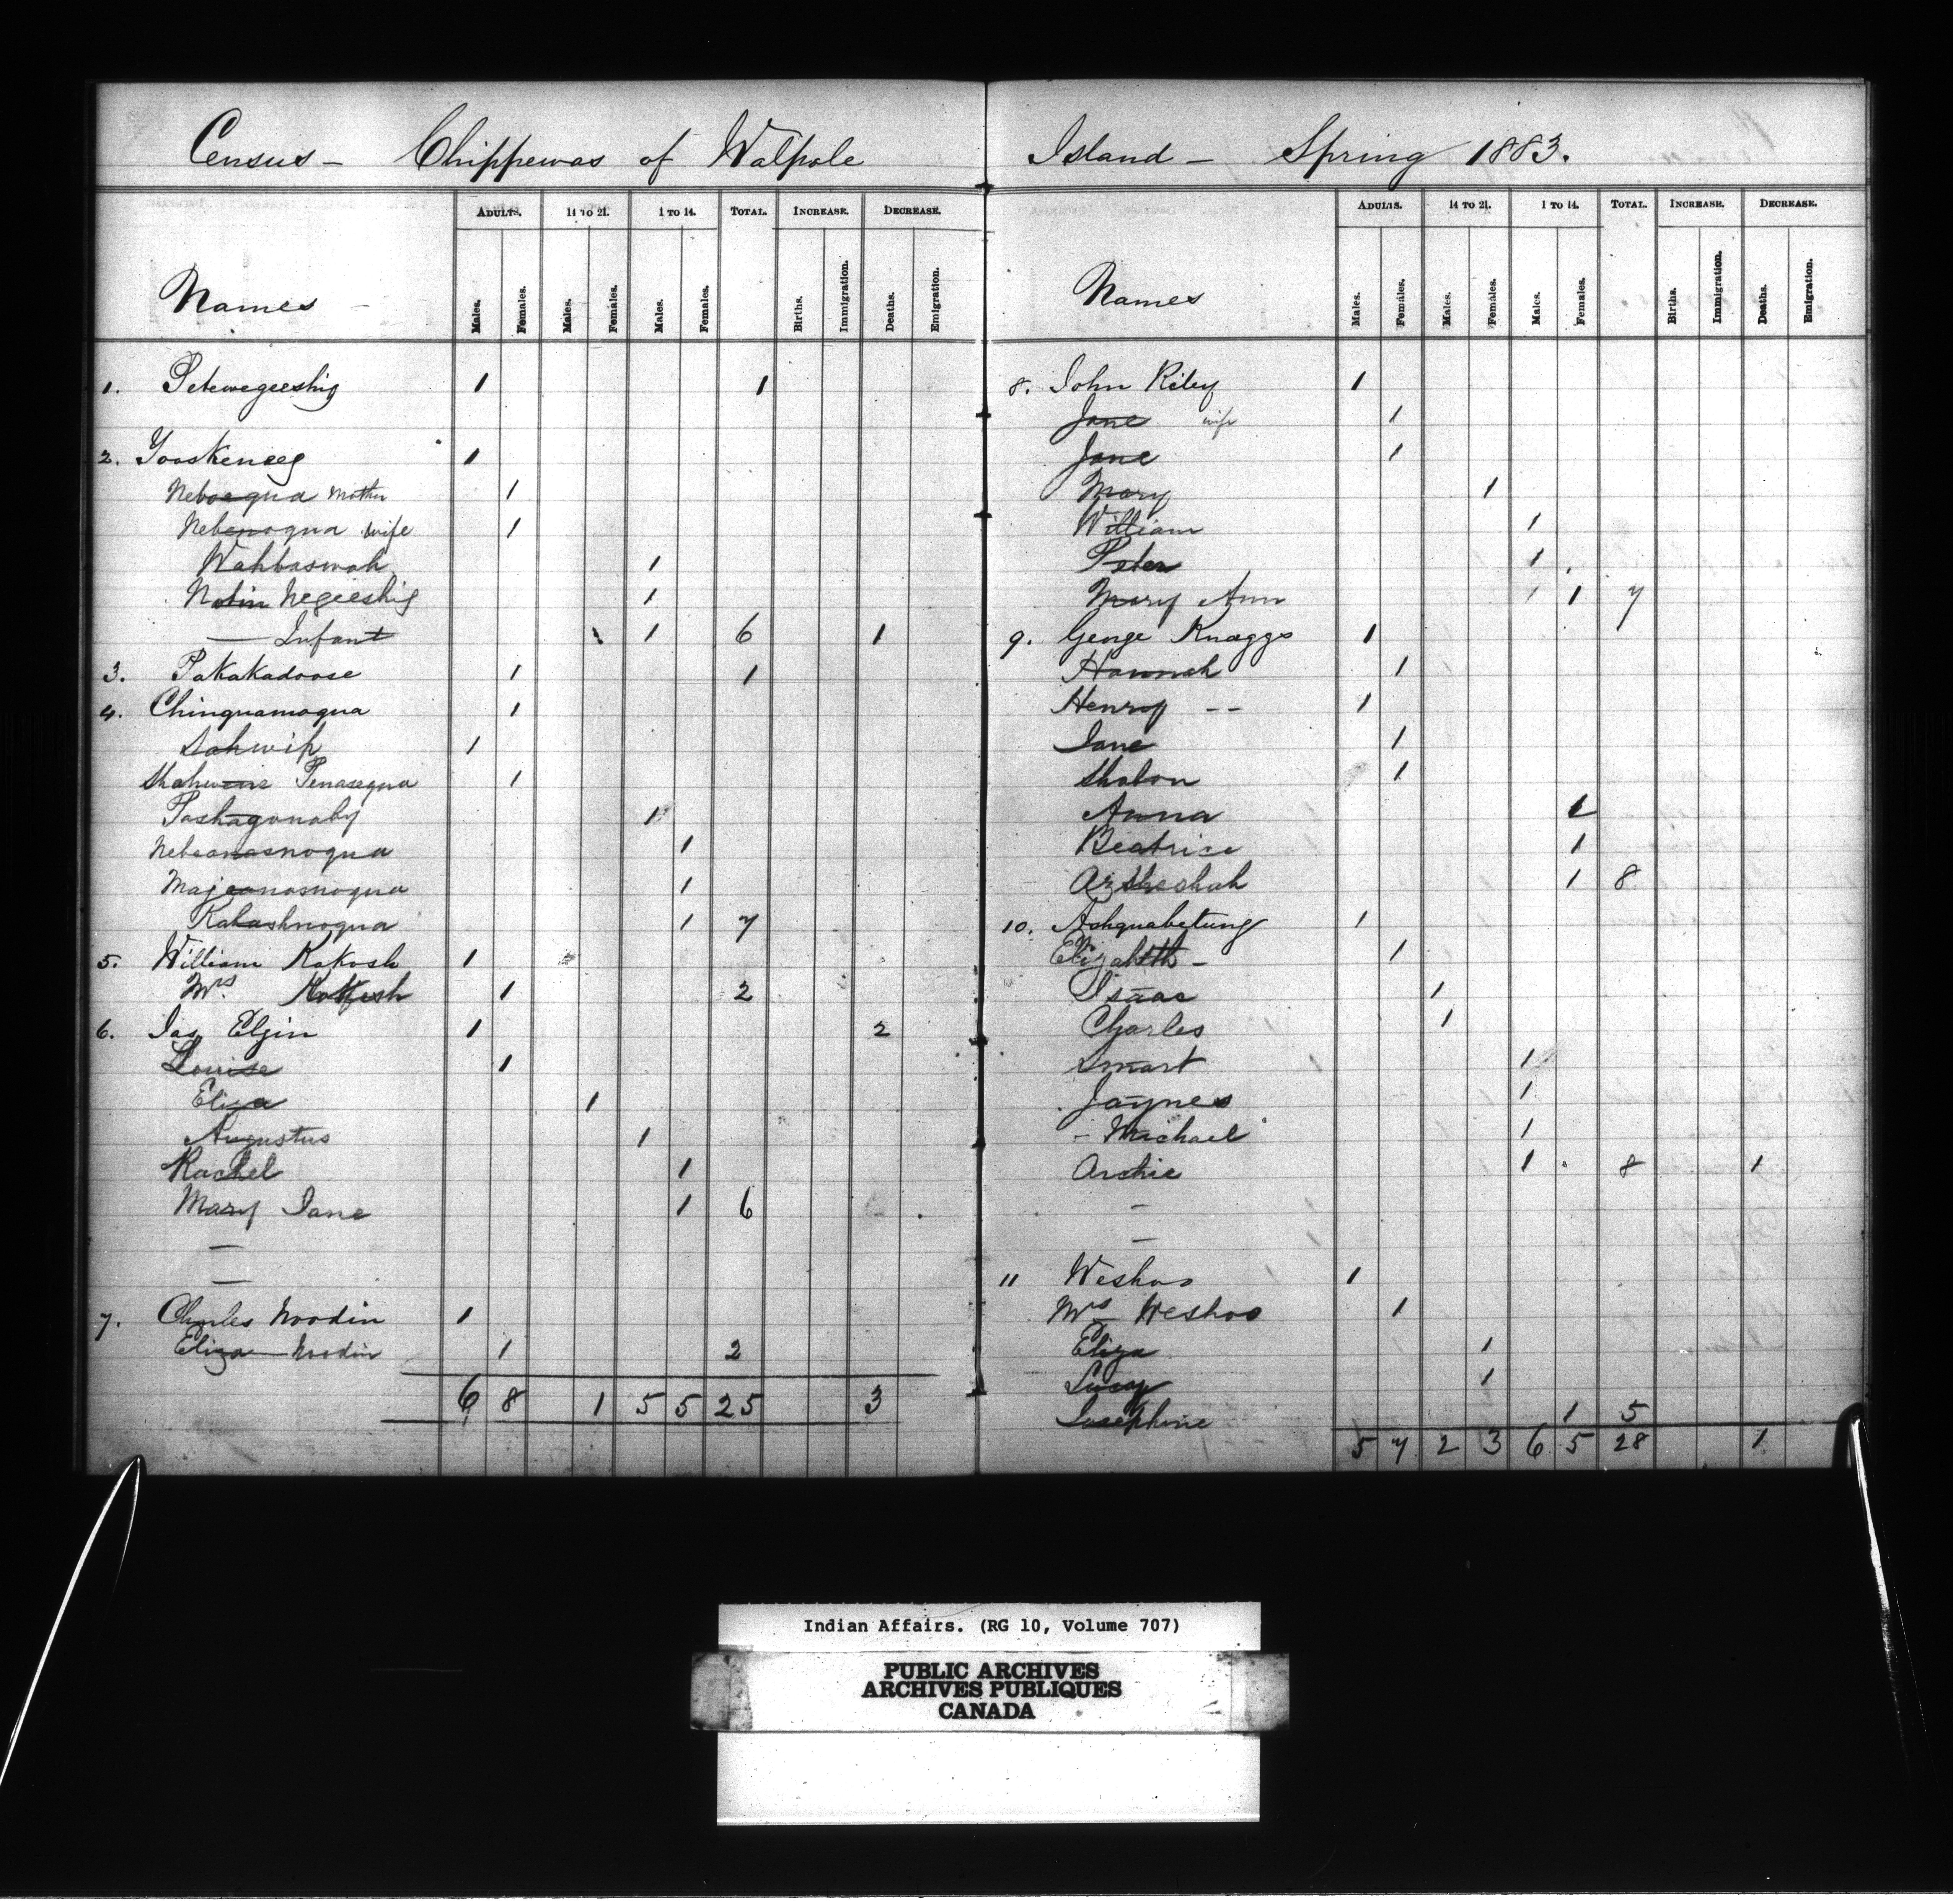 Census - Chippewas of Walpole
Names
ADULTS. 14 TO 21. 1 TO 14. TOTAL. INCREASE. DECREASE.
Males. Females. Males. Females. Males. Females. Births. Immigration. Deaths. Emigration.
1. Petewegeeshig 1 1
2. Yooskeneeg 1
Neboequa mother 1
Nebenoqua wife 1
Wahbaswah 1
Notin Negeeshig 1
— Infant 1 6 1
3. Pakakadoose 1 1
4. Chinquamoqua 1
Sahwip 1
Shahwine Penasequa 1
Pashagonaby 1
Nebeanasnoqua 1
Majeonasnoqua 1
Kakashnoqua 1 7
5. William Kakosh 1
Mrs Kakosh 1 2
6. Jas Elgin 1 2
Louise 1
Eliza 1
Augustus 1
Rachel 1
Mary Jane 1 6
—
—
7. Charles Noodin 1
Eliza Noodin 1 2
6 8 1 5 5 25 3
Island - Spring 1883.
Names
ADULTS. 14 TO 21. 1 TO 14. TOTAL. INCREASE. DECREASE.
Males. Females. Males. Females. Males. Females. Births. Immigration. Deaths. Emigration.
8. John Riley 1
Jane wife 1
Jane 1
Mary 1
William 1
Peter 1
Mary Ann 1 7
9. George Knaggs 1
Hannah 1
Henry -- 1
Jane 1
Shabon 1
Anna 1
Beatrice 1
Azheshah 1 8
10. Ashquabetung 1
Elizabeth - 1
Isaac 1
Charles 1
Smart 1
Jaynes 1
- Michael 1
Archie 1 8 1
-
-
11 Weshoo 1
Mrs Weshoo 1
Eliza 1
Lucy 1
Josephine 1 5
5 7 2 3 6 5 28 1
Indian Affairs. (RG 10, Volume 707)
PUBLIC ARCHIVES
ARCHIVES PUBLIQUES
CANADA